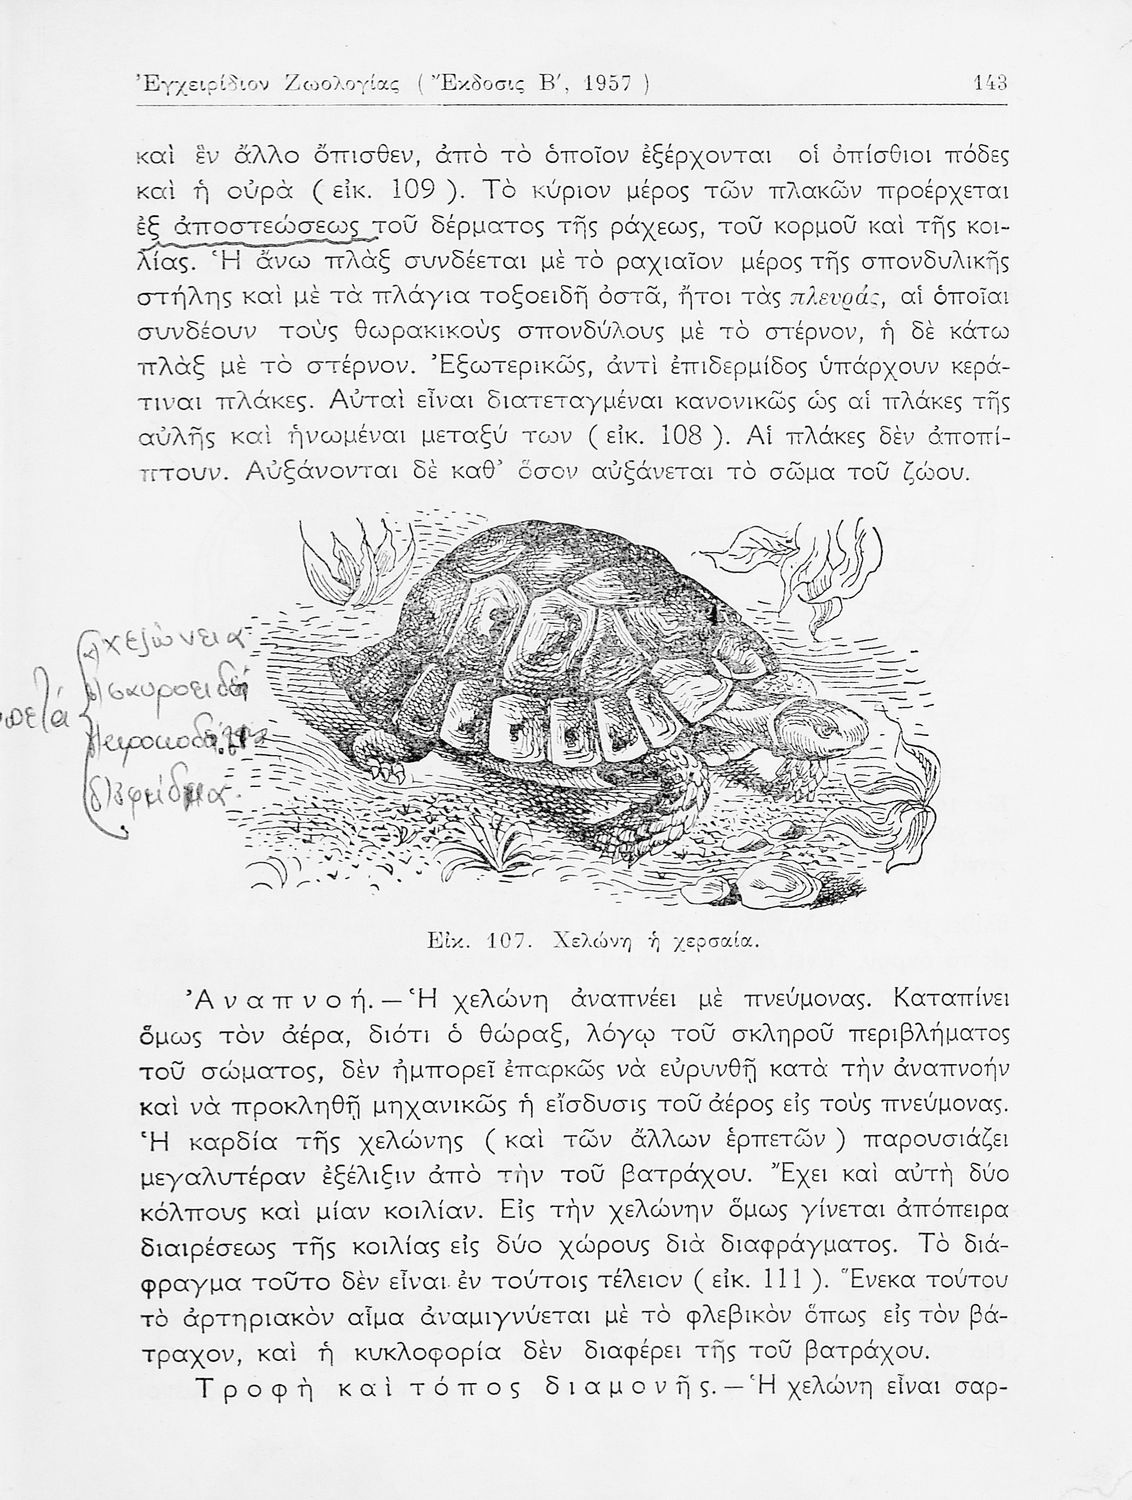 Ἐγχειρίδιον Ζωολογίας ( Ἔκδοσις Β΄, 1957 ) 143
καὶ ἓν ἄλλο ὄπισθεν, ἀπὸ τὸ ὁποῖον ἐξέρχονται οἱ ὀπίσθιοι πόδες
καὶ ἡ οὐρὰ ( εἰκ. 109 ). Τὸ κύριον μέρος τῶν πλακῶν προέρχεται
ἐξ ἀποστεώσεως τοῦ δέρματος τῆς ράχεως, τοῦ κορμοῦ καὶ τῆς κοι-
λίας. Ἡ ἄνω πλὰξ συνδέεται μὲ τὸ ραχιαῖον μέρος τῆς σπονδυλικῆς
στήλης καὶ μὲ τὰ πλάγια τοξοειδῆ ὀστᾶ, ἤτοι τὰς πλευράς, αἱ ὁποῖαι
συνδέουν τοὺς θωρακικοὺς σπονδύλους μὲ τὸ στέρνον, ἡ δὲ κάτω
πλὰξ μὲ τὸ στέρνον. Ἐξωτερικῶς, ἀντὶ ἐπιδερμίδος ὑπάρχουν κερά-
τιναι πλάκες. Αὐταὶ εἶναι διατεταγμέναι κανονικῶς ὡς αἱ πλάκες τῆς
αὐλῆς καὶ ἡνωμέναι μεταξύ των ( εἰκ. 108 ). Αἱ πλάκες δὲν ἀποπί-
πτουν. Αὐξάνονται δὲ καθ᾽ ὅσον αὐξάνεται τὸ σῶμα τοῦ ζώου.
χελώνεια
Εἰκ. 107. Χελώνη ἡ χερσαία.
Ἀναπνοή.—Ἡ χελώνη ἀναπνέει μὲ πνεύμονας. Καταπίνει
ὅμως τὸν ἀέρα, διότι ὁ θώραξ, λόγῳ τοῦ σκληροῦ περιβλήματος
τοῦ σώματος, δὲν ἠμπορεῖ ἐπαρκῶς νὰ εὐρυνθῇ κατὰ τὴν ἀναπνοήν
καὶ νὰ προκληθῇ μηχανικῶς ἡ εἴσδυσις τοῦ ἀέρος εἰς τοὺς πνεύμονας.
Ἡ καρδία τῆς χελώνης ( καὶ τῶν ἄλλων ἑρπετῶν ) παρουσιάζει
μεγαλυτέραν ἐξέλιξιν ἀπὸ τὴν τοῦ βατράχου. Ἔχει καὶ αὐτὴ δύο
κόλπους καὶ μίαν κοιλίαν. Εἰς τὴν χελώνην ὅμως γίνεται ἀπόπειρα
διαιρέσεως τῆς κοιλίας εἰς δύο χώρους διὰ διαφράγματος. Τὸ διά-
φραγμα τοῦτο δὲν εἶναι ἐν τούτοις τέλειον ( εἰκ. 111 ). Ἕνεκα τούτου
τὸ ἀρτηριακὸν αἷμα ἀναμιγνύεται μὲ τὸ φλεβικὸν ὅπως εἰς τὸν βά-
τραχον, καὶ ἡ κυκλοφορία δὲν διαφέρει τῆς τοῦ βατράχου.
Τροφὴ καὶ τόπος διαμονῆς.—Ἡ χελώνη εἶναι σαρ-